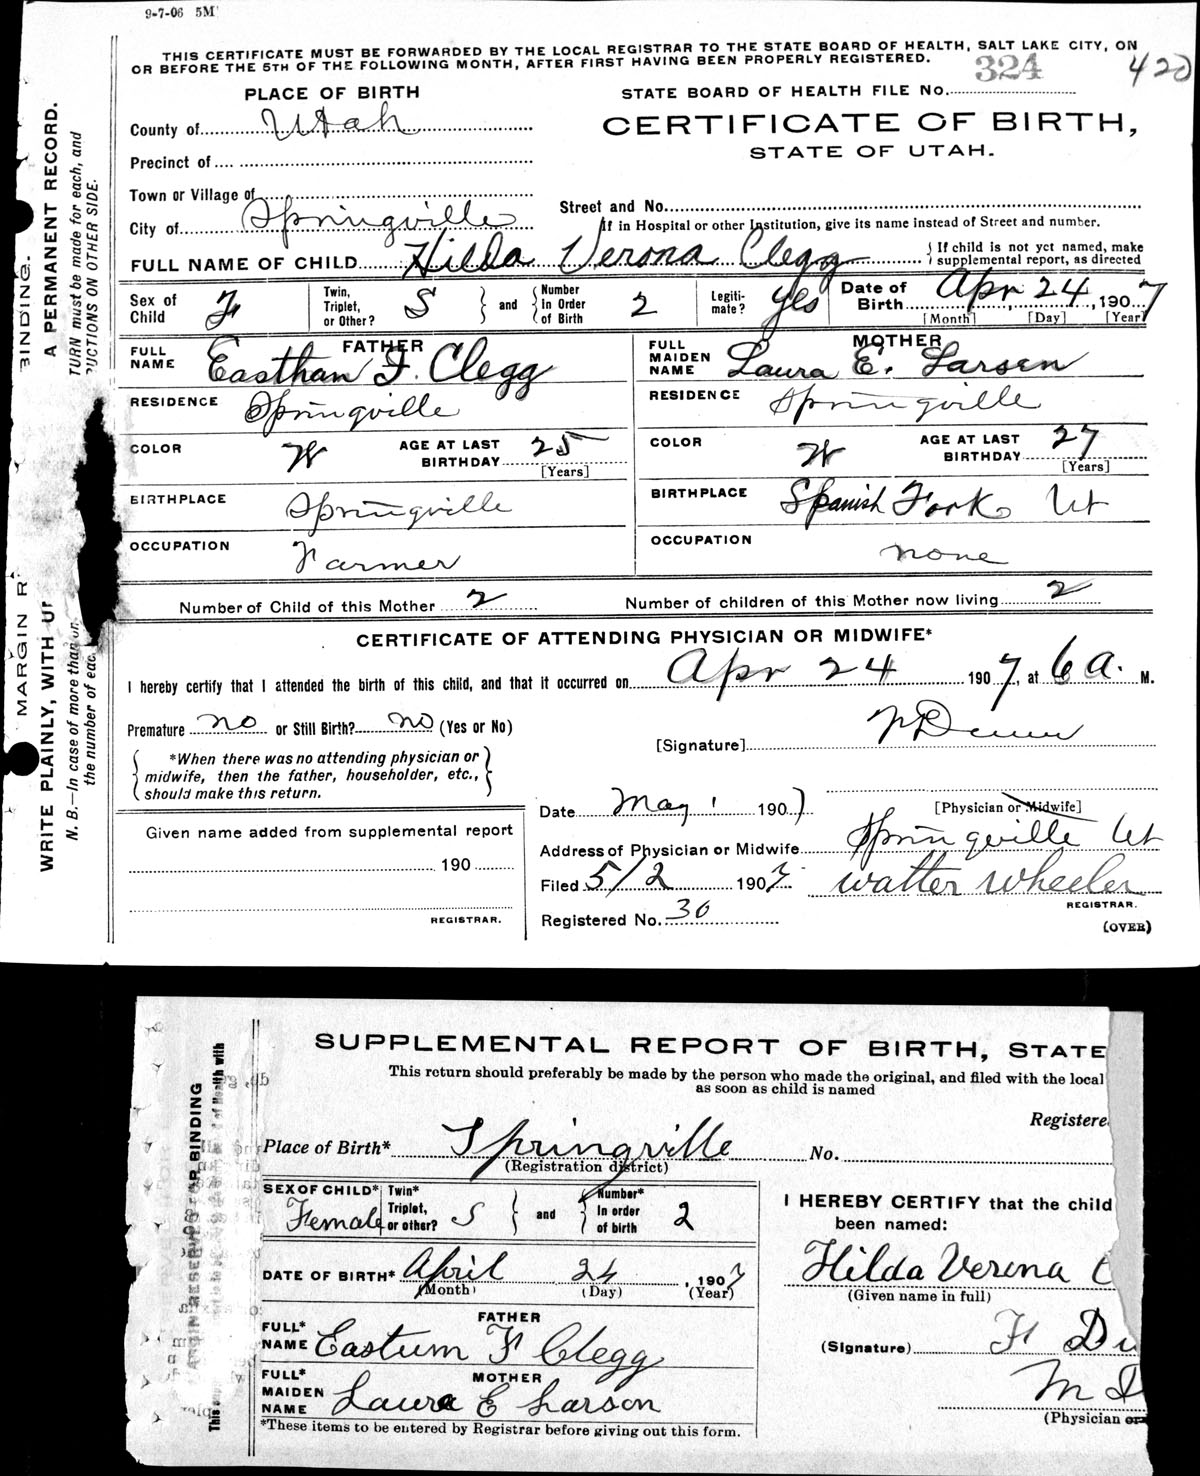 9-7-06 5M
THIS CERTIFICATE MUST BE FORWARDED BY THE LOCAL REGISTRAR TO THE STATE BOARD OF HEALTH, SALT LAKE CITY, ON
OR BEFORE THE 5TH OF THE FOLLOWING MONTH, AFTER FIRST HAVING BEEN PROPERLY REGISTERED.
324 420
PLACE OF BIRTH
STATE BOARD OF HEALTH FILE No.
County of Utah
CERTIFICATE OF BIRTH,
STATE OF UTAH.
Precinct of
Town or Village of
Street and No.
City of Springville
If in Hospital or other Institution, give its name instead of Street and number.
FULL NAME OF CHILD Hilda Verona Clegg
If child is not yet named, make
supplemental report, as directed
Sex of Child F
Twin, Triplet, or Other? S
and
Number In Order of Birth 2
Legiti-mate? Yes
Date of Birth Apr 24, 1907
[Month] [Day] [Year]
FATHER
FULL NAME Easthan F. Clegg
MOTHER
FULL MAIDEN NAME Laura E. Larsen
RESIDENCE Springville
RESIDENCE Springville
COLOR W
AGE AT LAST BIRTHDAY 25
[Years]
COLOR W
AGE AT LAST BIRTHDAY 27
[Years]
BIRTHPLACE Springville
BIRTHPLACE Spanish Fork Ut
OCCUPATION Farmer
OCCUPATION none
Number of Child of this Mother 2
Number of children of this Mother now living 2
CERTIFICATE OF ATTENDING PHYSICIAN OR MIDWIFE*
I hereby certify that I attended the birth of this child, and that it occurred on Apr 24 1907, at 6 a. M.
Premature no or Still Birth? no (Yes or No)
[Signature]
*When there was no attending physician or
midwife, then the father, householder, etc.,
should make this return.
Date May 1 1907
[Physician or Midwife]
Given name added from supplemental report
Address of Physician or Midwife Springville Ut
190
Filed 5/2 1907
Walter Wheeler
REGISTRAR.
REGISTRAR.
Registered No. 30
(OVER)
BINDING.
MARGIN R
A PERMANENT RECORD.
WRITE PLAINLY, WITH
TURN must be made for each, and
UCTIONS ON OTHER SIDE.
N. B.—In case of more than on
the number of eac
SUPPLEMENTAL REPORT OF BIRTH, STATE
This return should preferably be made by the person who made the original, and filed with the local
as soon as child is named
Registere
Place of Birth* Springville No.
(Registration district)
SEX OF CHILD* Female
Twin* Triplet, or other? S
and
Number* In order of birth 2
I HEREBY CERTIFY that the child
been named:
DATE OF BIRTH* April 24, 1907
(Month) (Day) (Year)
Hilda Verona C
(Given name in full)
FATHER
FULL* NAME Eastum F Clegg
(Signature) F Du
MOTHER
FULL* MAIDEN NAME Laura E Larson
M D
(Physician or
*These items to be entered by Registrar before giving out this form.